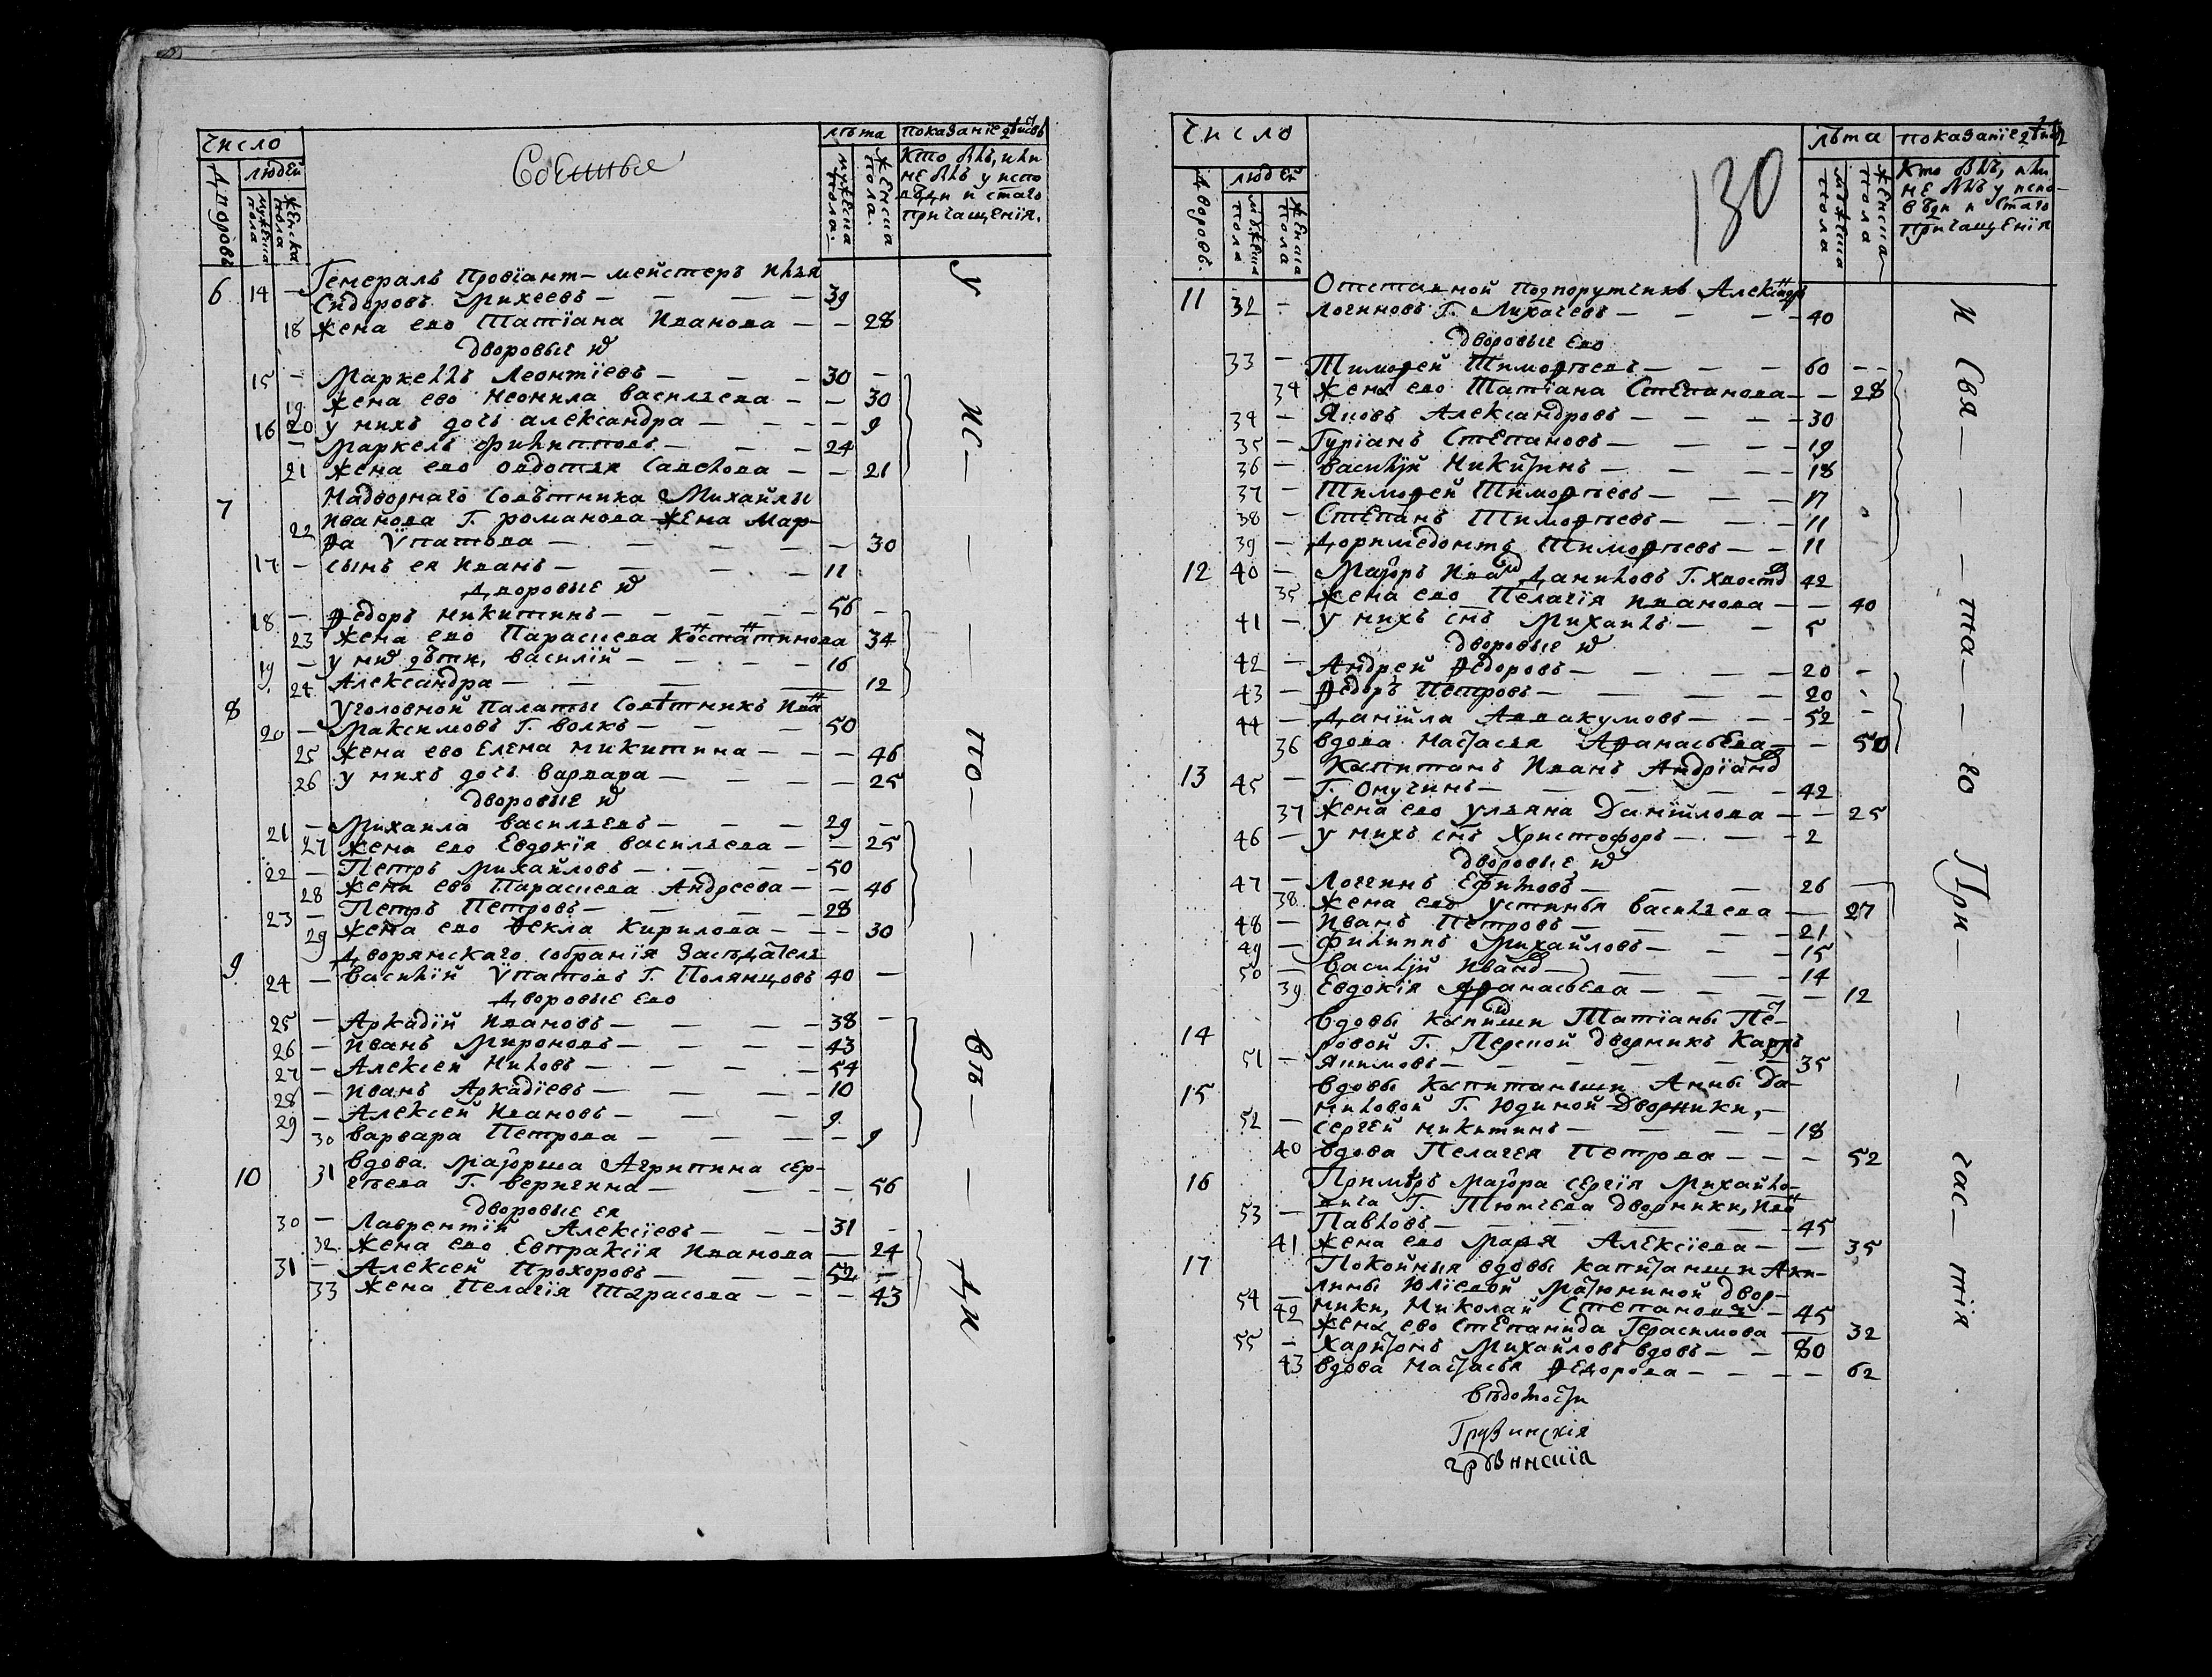 число
лѣта показанїе дѣйств
Дворовъ людей
мужеска пола женска пола
Кто былъ, или
не былъ у испо
вѣди и стаго
причащенїя.
6 14 — Генералъ Провїант–мейстеръ Илья
Сидоровъ Михеевъ — 39
18 жена ево Татїана Иванова — — 28
дворовые и
15 — Маркеллъ Леонтїевъ — 30 —
19 жена ево Неонила васильева — — 30
20 у нихъ дочь александра — — 9
16 — Маркелъ филипповъ — 24
21 жена ево овдотья Савелова — — 21
7 Надворнаго Совѣтника Михайлы
22 иванова Г. романова жена Мар–
ѳа Ѵпатова — — 30
17 — сынъ ея Иванъ — 11
Дворовые и
18 — Ѳедоръ никитинъ — 56 —
23 жена ево Параскева Костатинова 34
19 — у ни дѣти, василїй — 16
24 Александра — — 12
8 Уголовной Палаты Совѣтникъ Ива
20 — Максимовъ Г. волкъ — 50
25 жена ево Елена никитина — — 46
26 у нихъ дочь варвара — — 25
дворовые и
21 — Михаила васильевъ — 29 —
27 жена ево Евдокїя васильева — — 25
22 — Петръ михайловъ — 50
28 жена ево Параскева Андреева — — 46
23 — Петръ Петровъ — 28
29 жена ево Ѳекла Кирилова — — 30
9 Дворянскаго собранїя Засѣдатель
24 — василїй Ѵпатовъ Г. Полянцовъ 40 —
дворовые ево
25 — Аркадїй ивановъ — 38 —
26 — иванъ Мироновъ — 43
27 — Алексей Ниловъ — 54
28 — иванъ Аркадїевъ — 10
29 — Алексей ивановъ — 9
30 варвара Петрова — — 9
10 31 вдова маїорша Агрипина сер–
гѣева Г. веригина — — 56
дворовые ея
30 — Лаврентїй Алексїевъ — 31 —
32 жена ево Евпраксїя иванова — 24
31 — Алексей Прохоровъ — 52 —
33 жена Пелагїя Тарасова — — 43
У — ис — по — вѣ — ди
число
130
лѣта показанїе дѣйств
дворовъ. людей
мужеска пола женска пола
Кто былъ, или
не былъ у испо–
вѣди и стаго
причащенїя
11 32 — Отставной подпорутчикъ Александръ
Логиновъ Г. Лихачевъ — 40
дворовые ево
33 — Тимоѳей Тимоѳѣевъ — 60 — —
34 жена ево Татїана Степанова — — 28
34 — Яковъ Александровъ — 30
35 — Гурїанъ Степановъ — 19
36 — василїй Никитинъ — 18
37 — Тимоѳей Тимоѳѣевъ — 17
38 — Степанъ Тимоѳѣевъ — 11
39 — Доримедонтъ Тимоѳѣевъ — 11
12 40 — Маїоръ Иван Даниловъ Г. хвосто 42
35 жена ево Пелагїя иванова — — 40
41 — у нихъ снъ Михаилъ — 5
дворовые и
42 — Андрей Ѳедоровъ — 20 —
43 — Ѳедоръ Петровъ — 20
44 — Данїила Аввакумовъ — 52 —
36 вдова Настасья Аѳанасьева — — 50
13 45 — Капитанъ Иванъ Андрїано
Г. Онучинъ — 42
37 жена ево ульяна Данїилова — — 25
46 — у нихъ снъ Христофоръ — 2
дворовые и
47 — Логгинъ Ефимовъ — 26 —
38 жена ево устинья васильева — 27
48 — иванъ Петровъ — 21
49 — филиппъ михайловъ — 15
50 — василїй ивано — 14
39 Евдокїя Аѳанасьева — — 12
14 вдовы капиши Татїаны Пе–
ровой Г. Перской дворникъ Карпъ
51 — Якимовъ — 35
15 вдовы Капитанши Анны Да–
ниловой Г. Юдиной дворники, —
52 — сергей никитинъ — 18
40 вдова Пелагея Петрова — — 52
16 Примѣръ маїора сергїя Михайло–
вича Г. Тютчева дворники, Ива
53 — Павловъ — 45
41 жена ево марья Алексїева — — 35
17 Покойныя вдовы капитанши Аки–
лины Юлїевой Матюниной двор–
54 42 ники, Николай Степановъ — 45
жена ево степанида Герасимова — 32
55 — Харитонъ Михайловъ вдовъ — 80
43 вдова настасья Ѳедорова — — 62
и Свя — та — го При — час — тїя
вѣдомости
Грузинскїя
грузинскїя